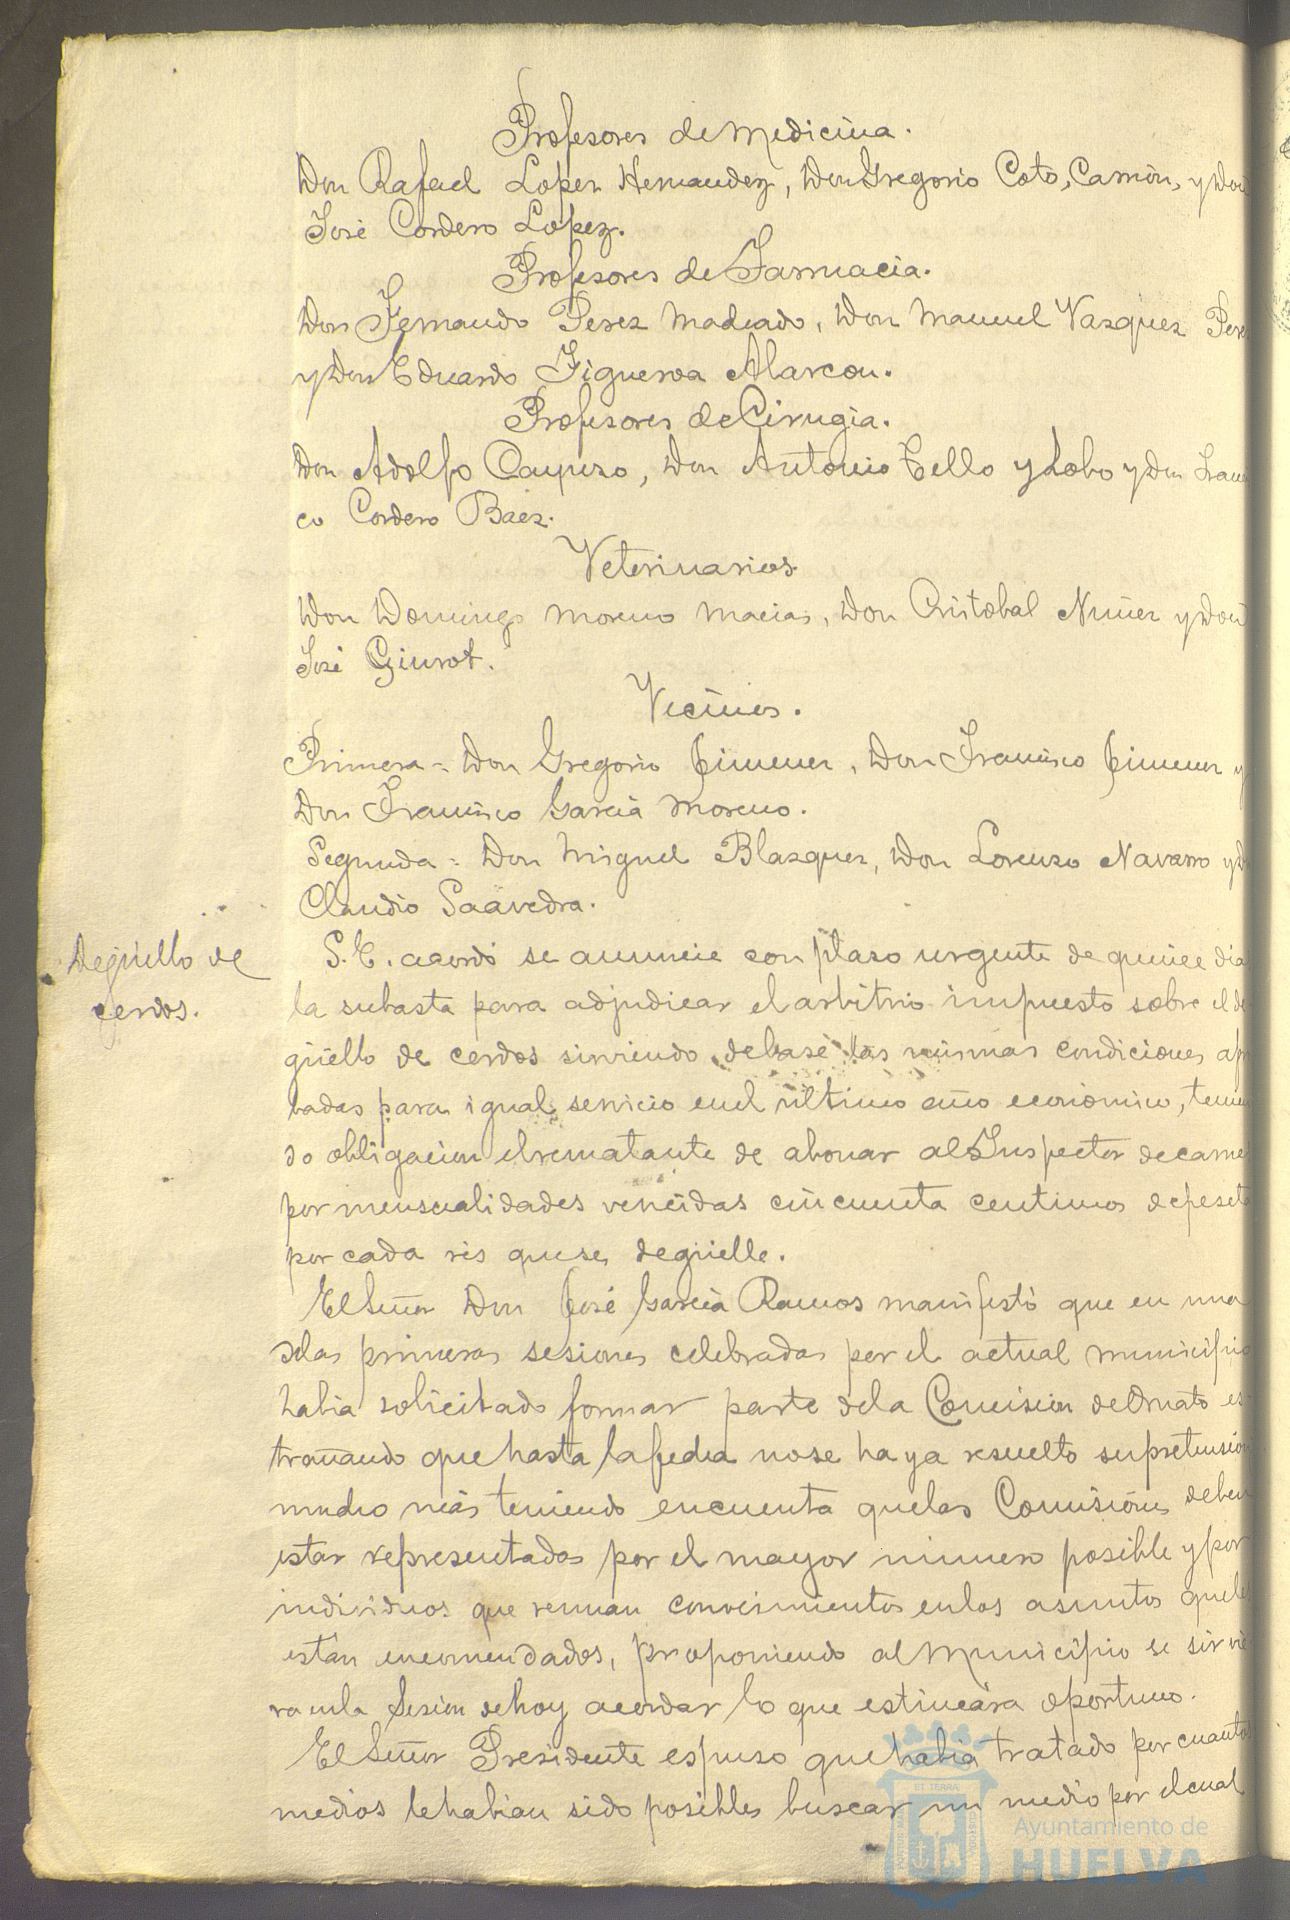 Profesores de Medicina.
Don Rafael Lopez Hernandez, Don Gregorio Coto, Carrión, y Don
José Cordero Lopez.
Profesores de Farmacia.
Don Fernando Perez Machado, Don Manuel Vazquez Perez
y Don Eduardo Figueroa Alarcon.
Profesores de Cirugía.
Don Adolfo Cayuso, Don Antonio Tello y Lobo y Don
co Cordero Baez.
Veterinarios
Don Domingo Moreno Macias, Don Cristobal Nuñez y Don
José Giurot.
Vecinos.
Primera = Don Gregorio Jimenez, Don Francisco Jimenez y
Don Francisco Garcia Moreno.
Segunda = Don Miguel Blazquez, Don Lorenzo Navarro y
Claudio Saavedra.
Degüello de
cerdos.
S. E. acordó se anuncie con plazo urgente de quince dia
la subasta para adjudicar el arbitrio impuesto sobre el de
güello de cerdos sirviendo de base las mismas condiciones
badas para igual servicio en el ultimo año economico,
do obligacion el rematante de abonar al Inspector de carne
por mensualidades vencidas cincuenta centimos de peseta
por cada res que se degüelle.
El Señor Don José Garcia Ramos manifestó que en una
de las primeras sesiones celebradas por el actual municipio
habia solicitado formar parte de la Comision de Ornato es
trañando que hasta la fecha no se haya resuelto su pretension
mucho más teniendo en cuenta que las Comisiones deben
estar representadas por el mayor numero posible y por
individuos que reunan conocimientos en los asuntos que les
están encomendados, proponiendo al Municipio se sirvie
ra en la Sesion de hoy acordar lo que estimára oportuno.
El Señor Presidente espuso que habia tratado por cuantos
medios le habian sido posibles buscar un medio por el cual
ET TERRA
Ayuntamiento de
HUELVA